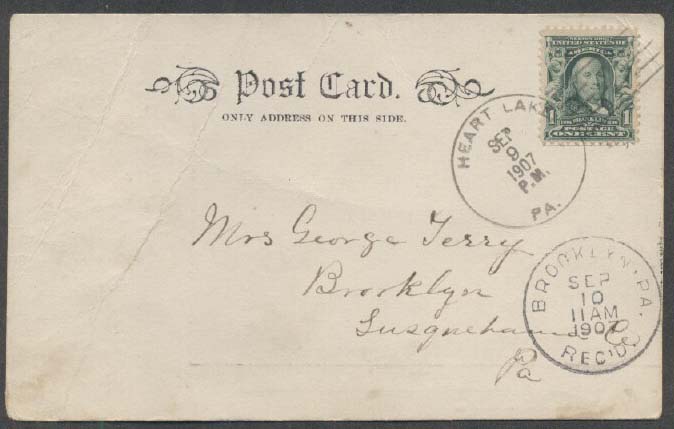 Post Card.
ONLY ADDRESS ON THIS SIDE.
SERIES 1902
UNITED STATES OF
AMERICA
FRANKLIN
1 POSTAGE 1
ONE CENT
HEART LAKE
SEP
9
1907
P.M.
PA.
Mrs George Terry
Brooklyn
Susquehanna Co
Pa
BROOKLYN, PA.
SEP
10
11AM
1907
REC'D.